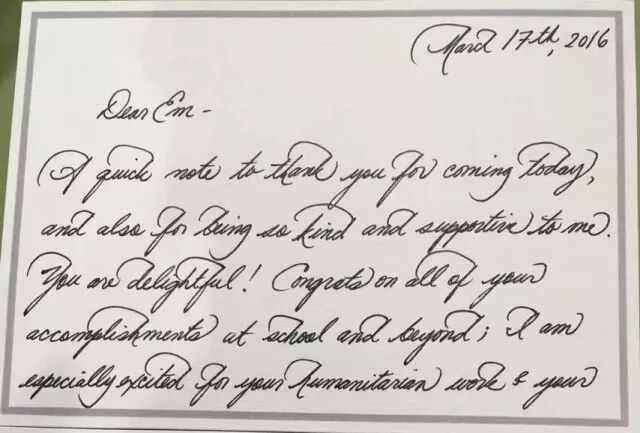 March 17th, 2016
Dear Em -
A quick note to thank you for coming today,
and also for being so kind and supportive to me.
You are delightful! Congrats on all of your
accomplishments at school and beyond; I am
especially excited for your humanitarian work & your